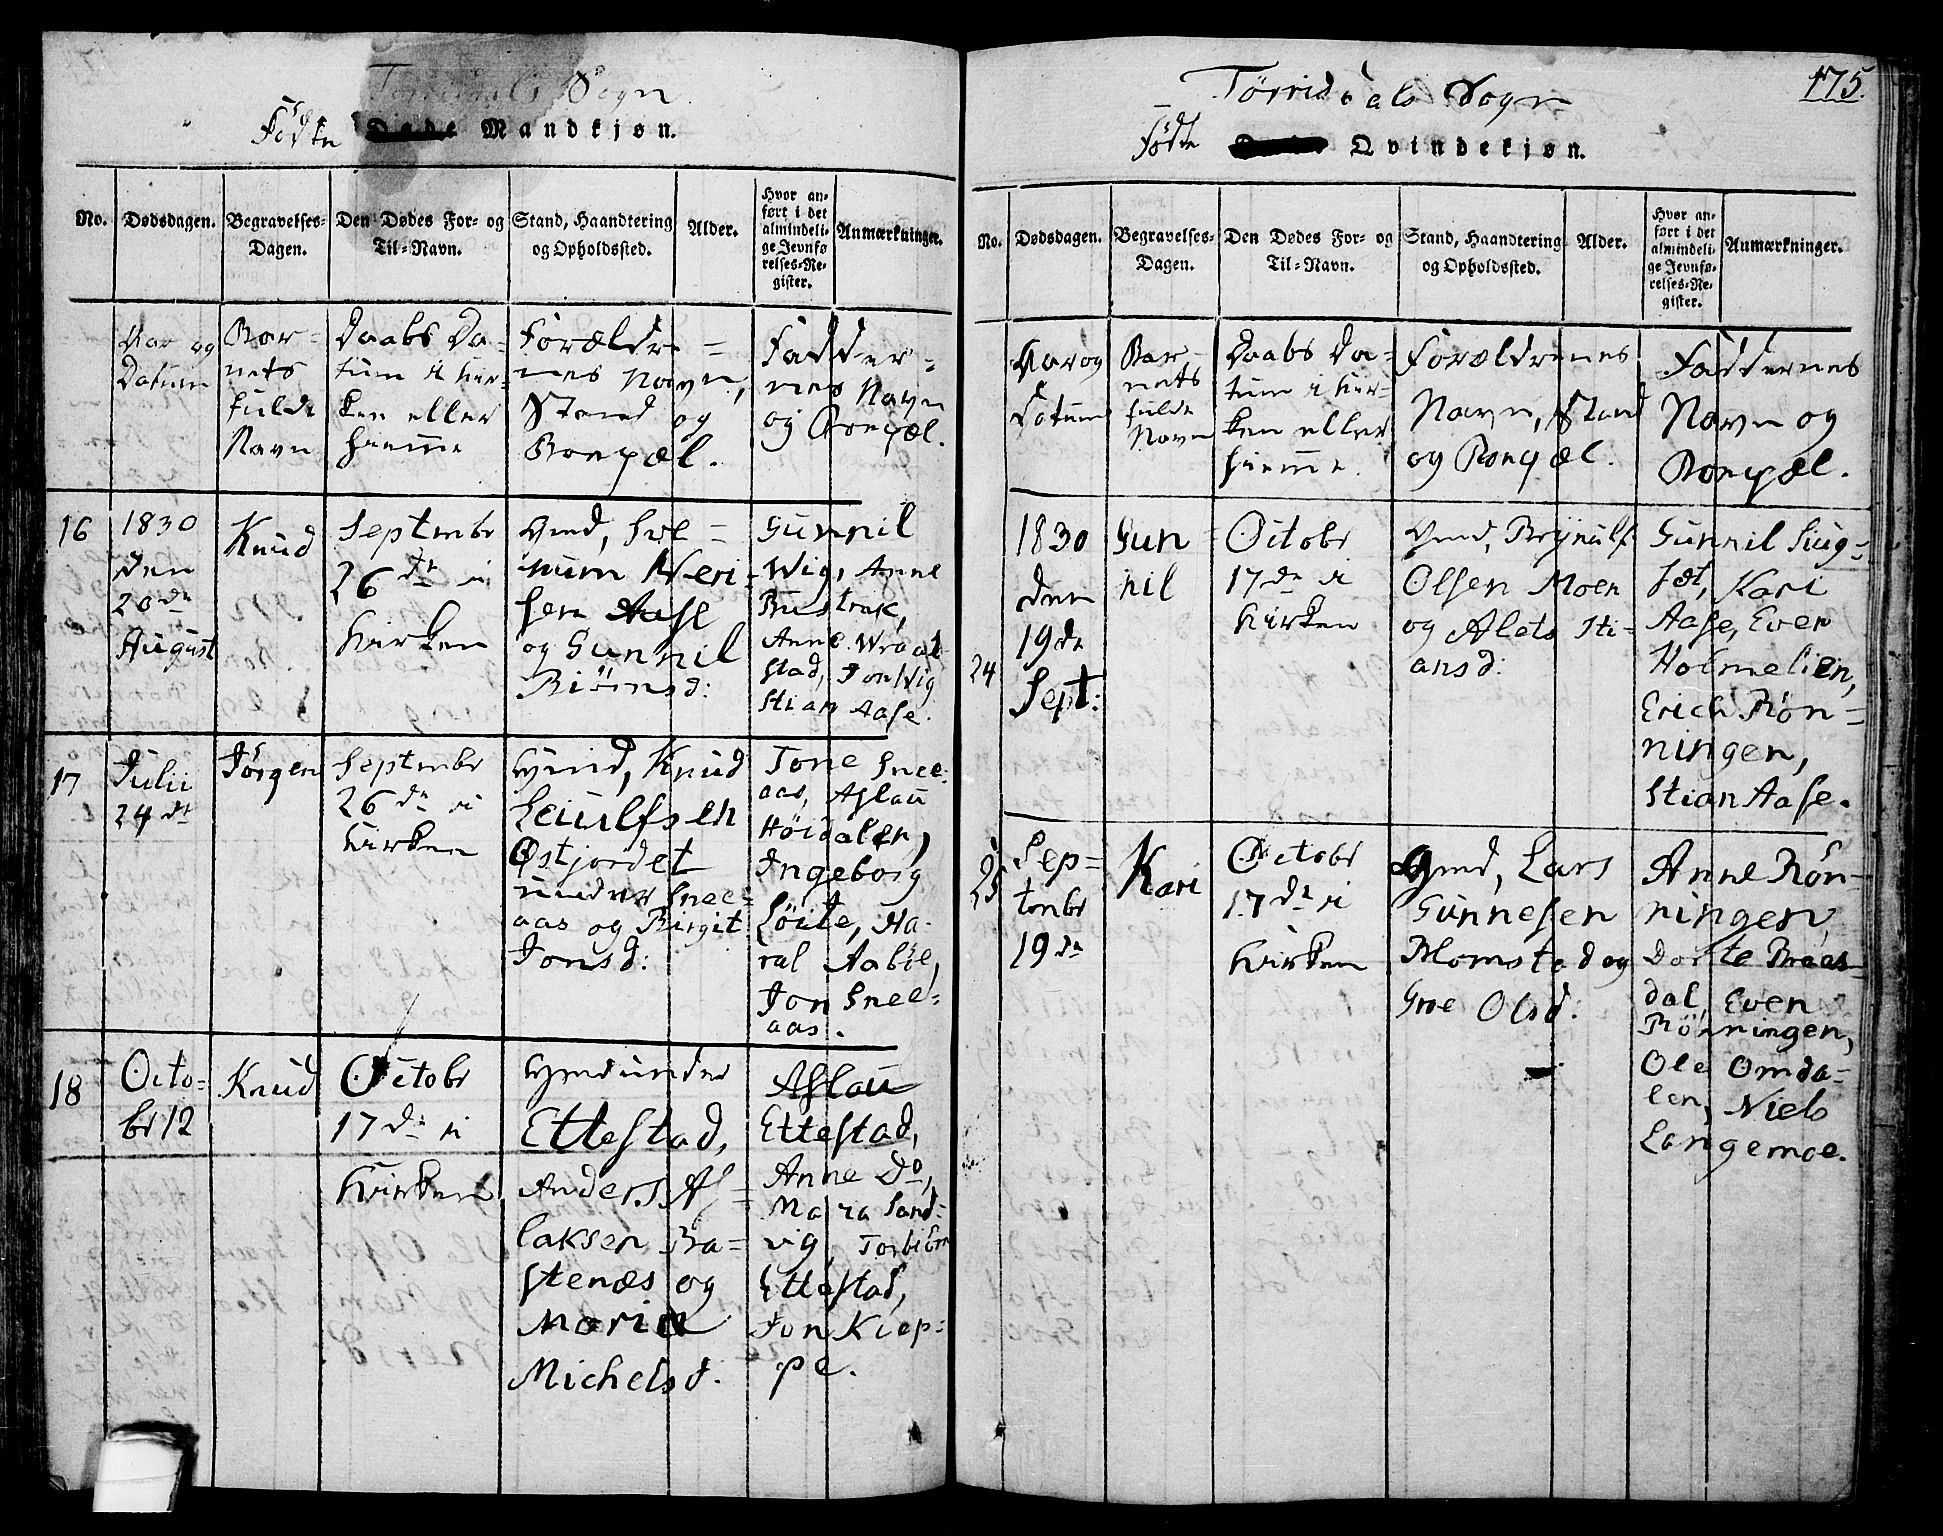 Sogn
Fødte Døde Mandkjøn.
No.
Dødsdagen.
Begravelses-
Dagen.
Den Dødes For- og
Til-Navn.
Stand, Haandtering
og Opholdssted.
Alder.
Hvor an-
ført i det
almindeli-
ge Jevnfø-
relses-Re-
gister.
Anmærkninger.
Aar og
Datum
Bar-
nets
fulde
Navn
Daabs Da-
tum i kir-
ken eller
hjemme
Forældre-
nes Navn,
Stand og
Bopæl.
Fadder-
nes Navn
og Bopæl.
16
1830
den
20de
August
Knud
Septembr
26de i
kirken
Aase
og Gunnil
Biörnsd:
Gunnil
Wig, Anne
Anne Wraal
stad, Jon Wig
Stian Aase.
17
Julii
24de
Jörgen
Septembr
26de i
kirken
Gmd, Knud
Leiulfsen
Østjordet
under Snee-
aas og Birgit
Jonsd:
Tone Snee-
aas, Aslau
Höidalen,
Ingeborg
Löite, Ha-
ral Aaböe,
Jon Snee-
aas.
18
Octo-
br 12
Knud
Octobr
17de i
kirken
Gmd under
Ettestad,
Anders As-
laksen Ba-
stenæs og
Maria
Michelsd.
Aslau
Ettestad,
Anne Do,
Mara Sand-
vig, Torbiörn
Ettestad,
Jon Kiep-
pe.
175.
Törrisdals Sogn
Fødte Qvindekjøn.
No.
Dødsdagen.
Begravelses-
Dagen.
Den Dødes For- og
Til-Navn.
Stand, Haandtering
og Opholdssted.
Alder.
Hvor an-
ført i det
almindeli-
ge Jevnfø-
relses-Re-
gister.
Anmærkninger.
Aar og
Datum
Bar-
nets
fulde
Navn
Daabs Da-
tum i kir-
ken eller
hjemme.
Forældrenes
Navn, Stand
og Bopæl.
Faddernes
Navn og
Bopæl.
24
1830
den
19de
Sept:
Gun-
nil
Octobr
17de i
kirken
Gmd, Brynulf
Olsen Moen
og Alets Sti-
ansd:
Gunnil
Kari
Aase, Even
Holmelien,
Erich Rön-
ningen,
Stian Aase.
25
Sep-
tembr
19de
Kari
Octobr
17de i
kirken
Gmd, Lars
Gunnesen
Blomstad og
Groe Olsd.
Anne Rön-
ningen,
Dorte Braas-
dal, Even
Rönningen,
Ole Omda-
len, Niels
Langemoe.